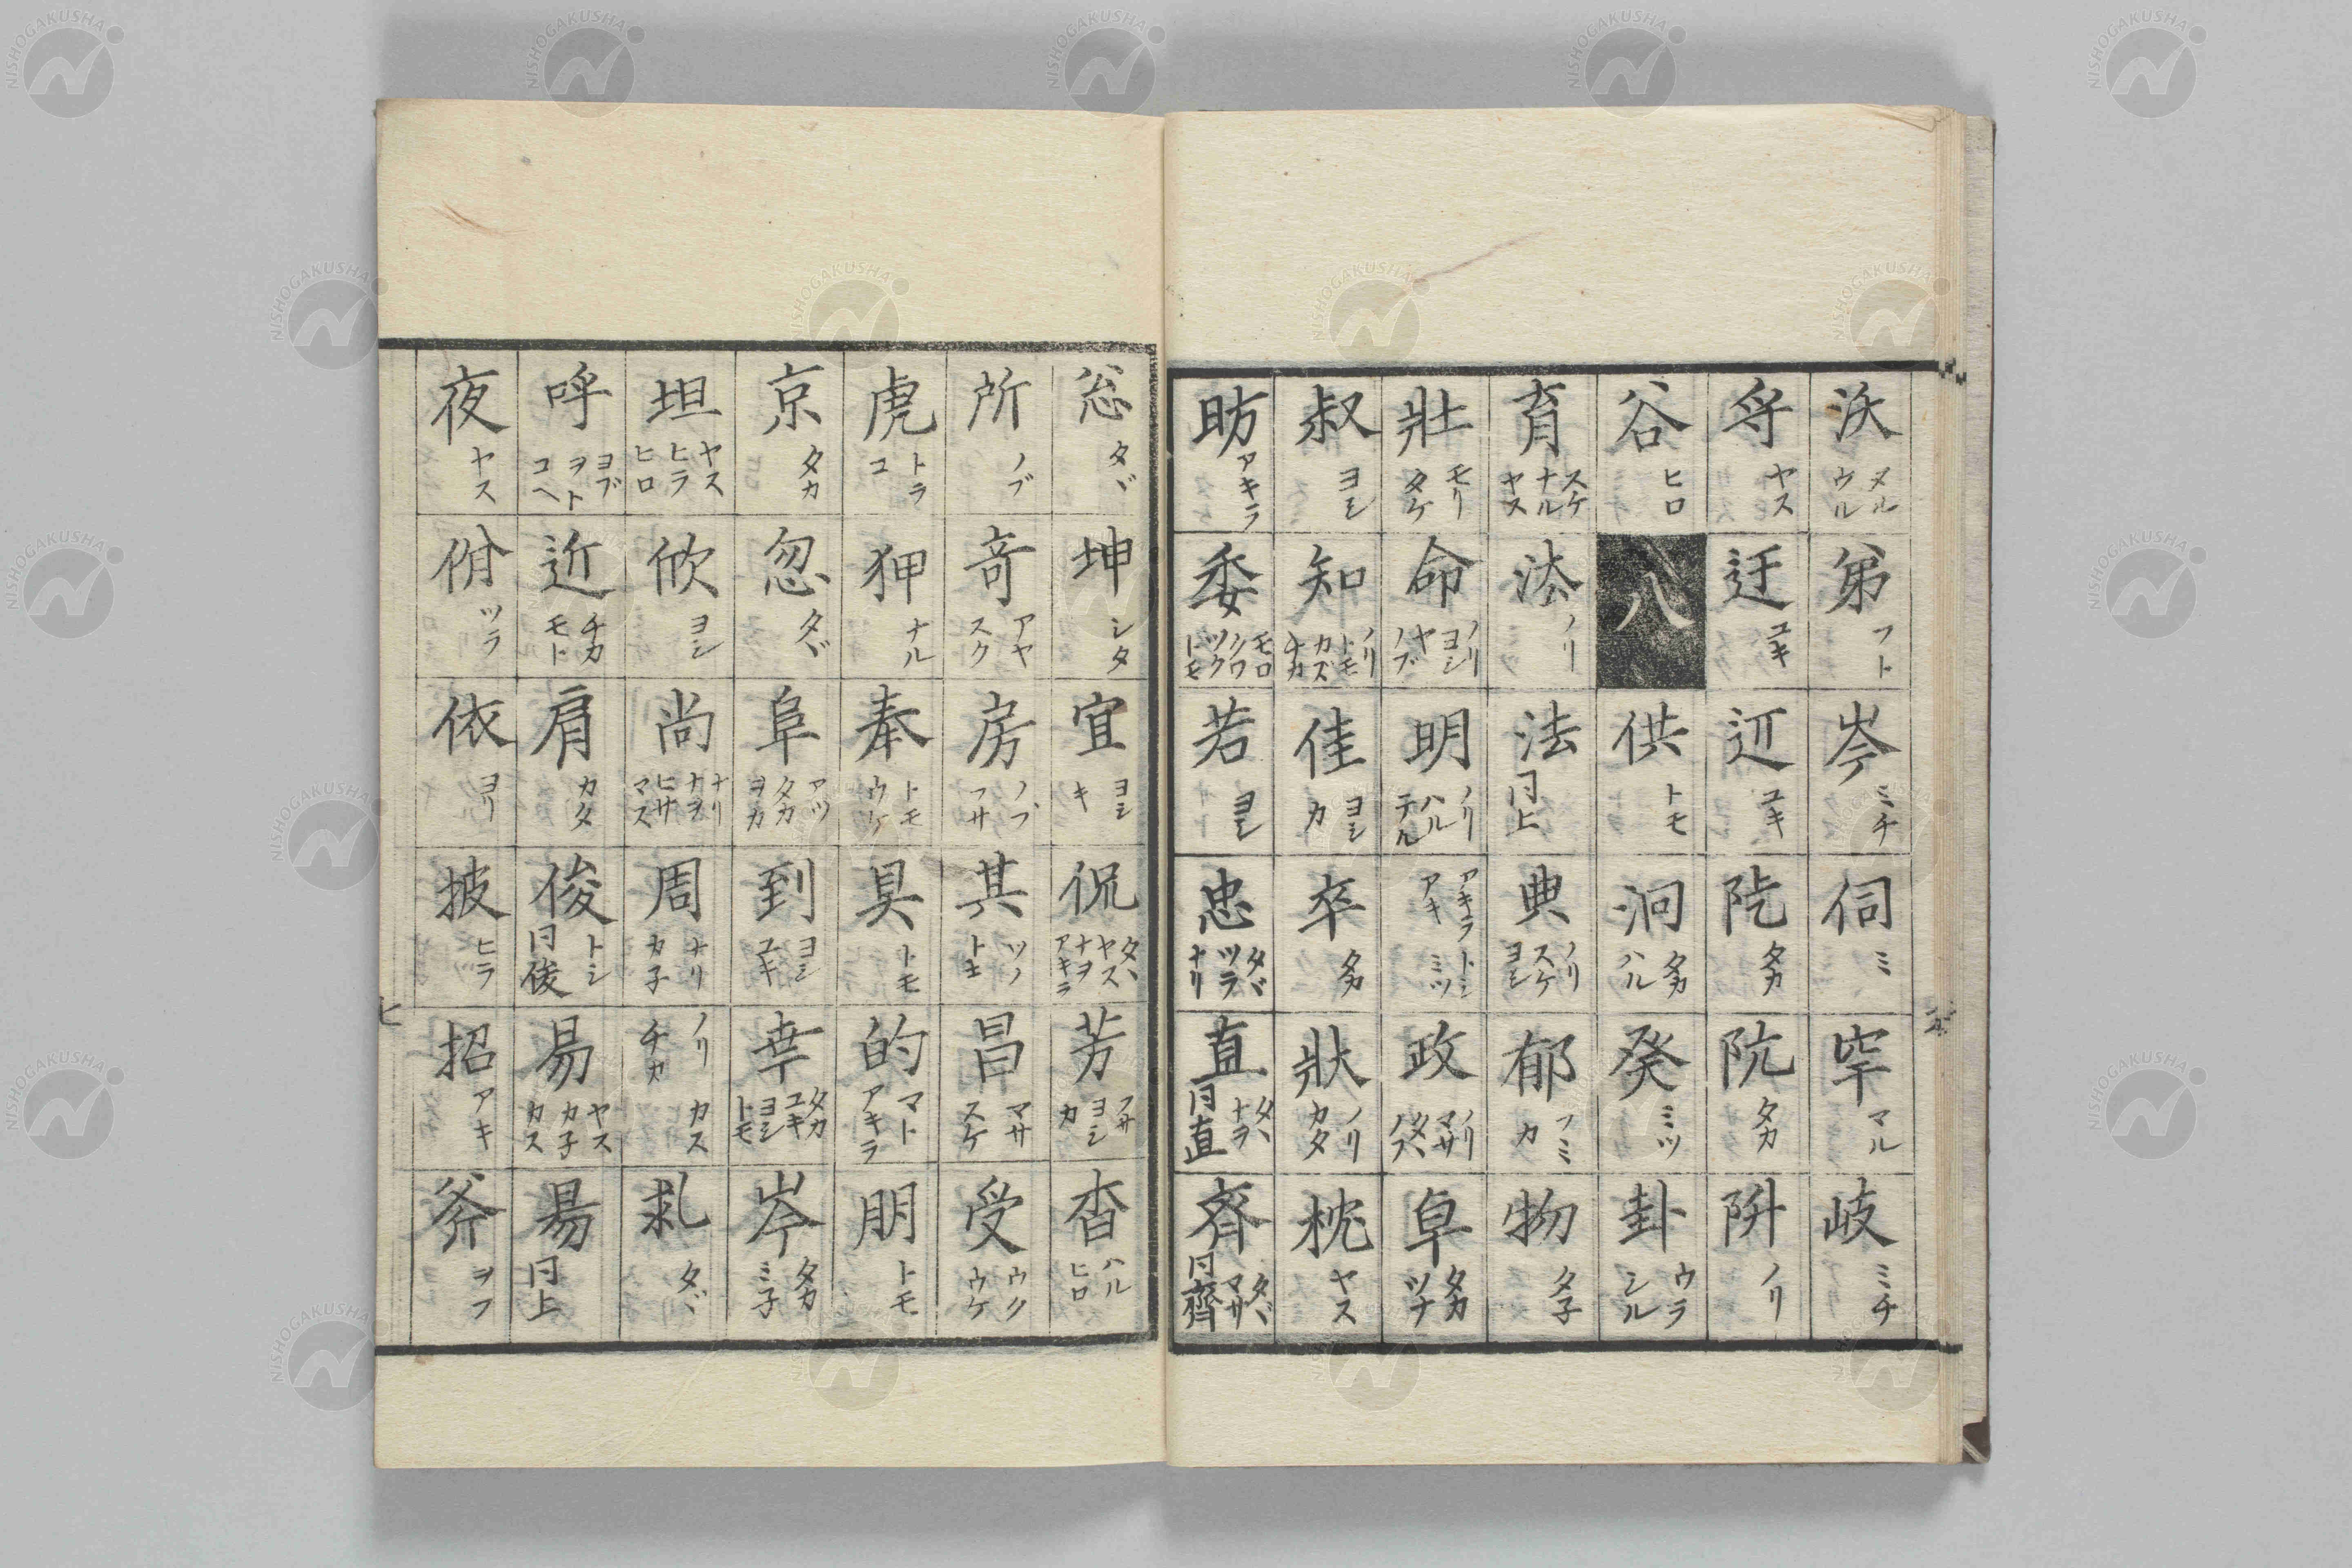 沃 ヌル ウル
弟 フト
岑 ミチ
伺 ミ
罕 マル
岐 ミチ
ヤス
迂 ユキ
ユキ
タカ
阬 タカ
阩 ノリ
谷 ヒロ
八
供 トモ
泂 タカ ハル
癸 ミツ
卦 ウラ シル
育 スケ ナル ヤス
ノリ
法 同上
典 ノリ スケ ヨシ
郁 フミ カ
物 タ子
壯 モリ タケ
命 ノリ ヨシ ヤ ノブ
明 ノリ ハル テル
アキラ アキ トシ ミツ
政 ノリ マサ
阜 タカ ツナ
叔 ヨシ
知 ノリ トモ カズ チカ
佳 ヨシ カ
卒 タカ
狀 ノリ カタ
枕 ヤス
昉 アキラ
委 モロ ツク トモ
若 ヨシ
忠 タヾ ツラ ナリ
直 タヾ ナヲ 同直
齊 タヾ マサ 同齊
忩 タヾ
坤 シタ
宜 ヨシ キ
侃 タヾ ヤス ナヲ アキラ
芳 フサ ヨシ カ
杳 ハル ヒロ
所 ノブ
奇 アヤ スク
房 ノブ フサ
其 ソノ トキ
昌 マサ スケ
受 ウク ウケ
虎 トラ コ
狎 ナル
奉 トモ ウケ
具 トモ
的 マト アキラ
朋 トモ
京 タカ
忽 タヾ
阜 アツ タカ ヲカ
到 ヨシ ユキ
幸 タカ ユキ ヨシ トモ
岑 タカ ミ子
坦 ヤス ヒラ ヒロ
佽 ヨシ
尚 ナリ ナヲ ヒサ マス
周 ナリ カ子
ノリ チカ カス
タヾ
呼 ヨブ ヲト コヘ
近 チカ モト
肩 カタ
俊 トシ 同俊
易 ヤス カ子 カス
昜 同上
夜 ヤス
佾 ツラ
依 ヨリ
披 ヒラ
招 アキ
斧 ヲフ
七
NISHOGAKUSHA